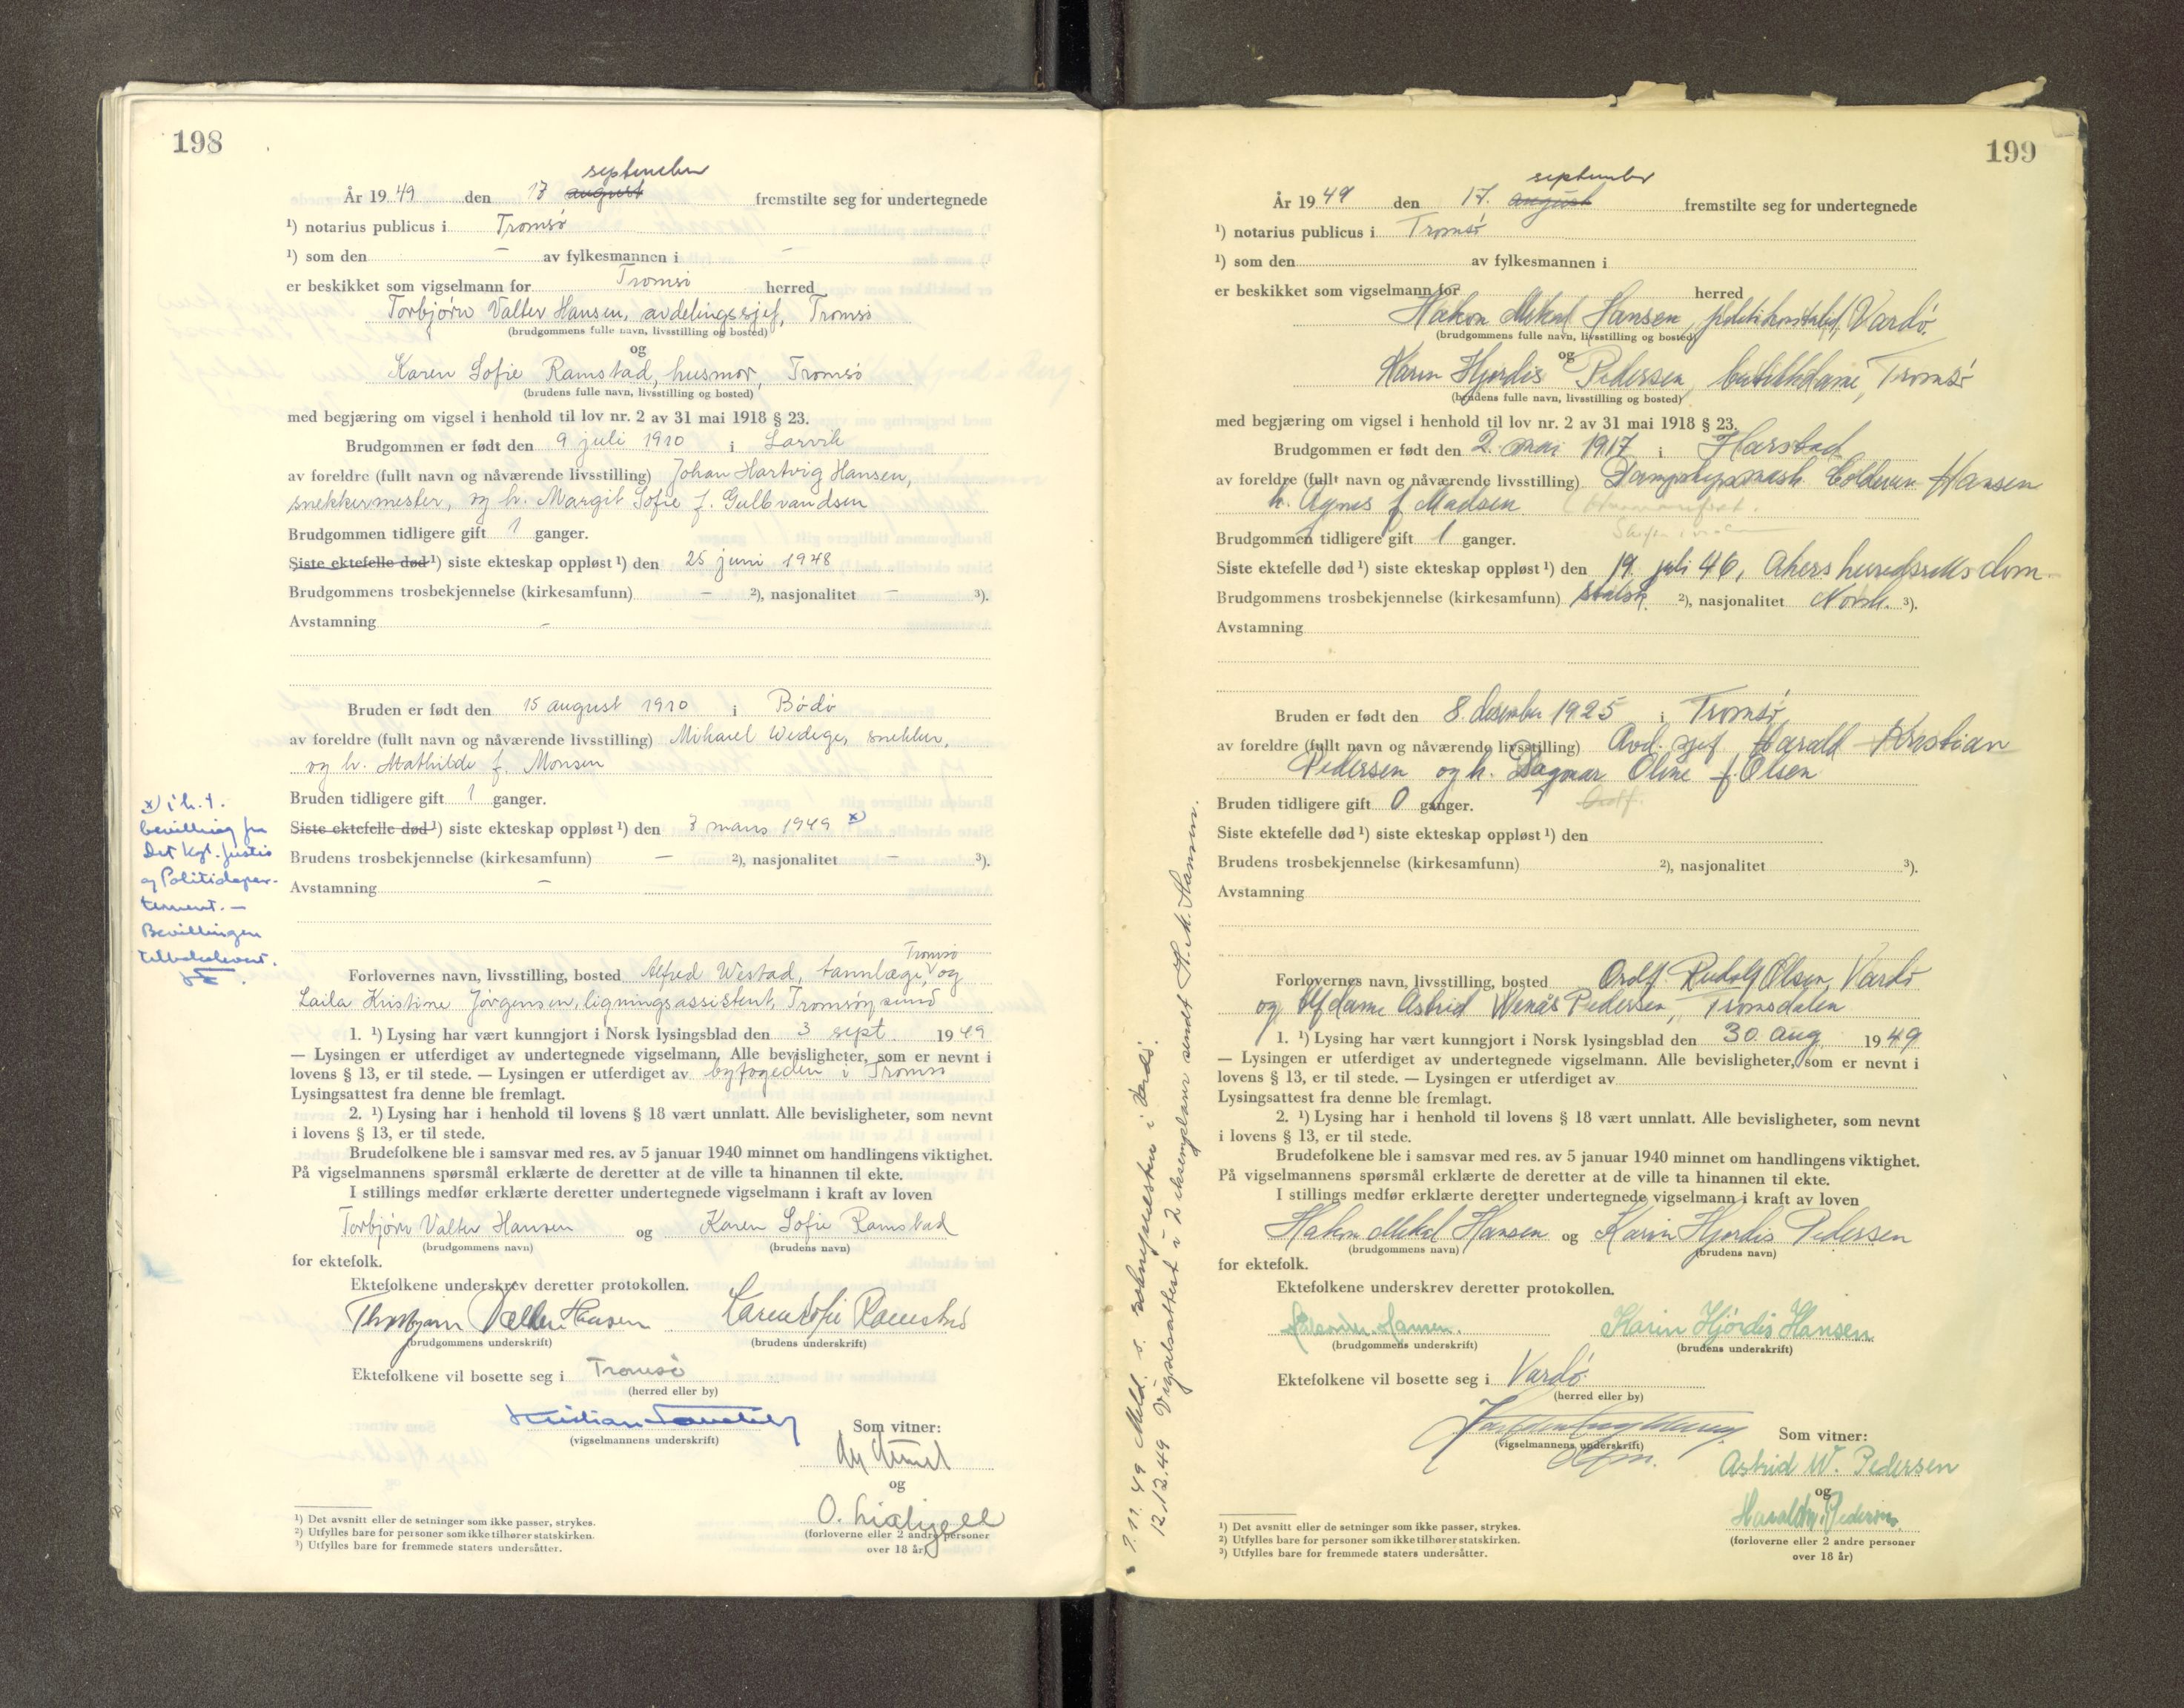 198
september
År 19 49 den 17 august fremstilte seg for undertegnede
¹) notarius publicus i Tromsø
¹) som den — av fylkesmannen i —
er beskikket som vigselmann for Tromsø herred
Torbjørn Valter Hansen, avdelingssjef, Tromsø
(brudgommens fulle navn, livsstilling og bosted)
og
Karen Sofie Ramstad, husmor, Tromsø
(brudens fulle navn, livsstilling og bosted)
med begjæring om vigsel i henhold til lov nr. 2 av 31 mai 1918 § 23.
Brudgommen er født den 9 juli 1910 i Larvik
av foreldre (fullt navn og nåværende livsstilling) Johan Hartvig Hansen,
snekkermester, og h. Margit Sofie f. Gulbrandsen
Brudgommen tidligere gift 1 ganger.
Siste ektefelle død ¹) siste ekteskap oppløst ¹) den 25 juni 1948
Brudgommens trosbekjennelse (kirkesamfunn) — ²), nasjonalitet — ³).
Avstamning —
Bruden er født den 15 august 1910 i Bodø
av foreldre (fullt navn og nåværende livsstilling) Mikael Wedege, snekker,
og h. Mathilde f. Monsen
Bruden tidligere gift 1 ganger.
Siste ektefelle død ¹) siste ekteskap oppløst ¹) den 7 mars 1949 x)
Brudens trosbekjennelse (kirkesamfunn) — ²), nasjonalitet — ³).
Avstamning —
x) i h. t.
bevilling fra
Det kgl. Justis
og Politidepar-
tement. —
Bevillingen
tilbakelevert.
Tromsø
Forlovernes navn, livsstilling, bosted Alfred Westad, tannlæge, og
Laila Kristine Jørgensen, ligningsassistent, Tromsøysund
1. ¹) Lysing har vært kunngjort i Norsk lysingsblad den 3 sept. 19 49
— Lysingen er utferdiget av undertegnede vigselmann. Alle bevisligheter, som er nevnt i
lovens § 13, er til stede. — Lysingen er utferdiget av byfogeden i Tromsø
Lysingsattest fra denne ble fremlagt.
2. ¹) Lysing har i henhold til lovens § 18 vært unnlatt. Alle bevisligheter, som nevnt
i lovens § 13, er til stede.
Brudefolkene ble i samsvar med res. av 5 januar 1940 minnet om handlingens viktighet.
På vigselmannens spørsmål erklærte de deretter at de ville ta hinannen til ekte.
I stillings medfør erklærte deretter undertegnede vigselmann i kraft av loven
Torbjørn Valter Hansen og Karen Sofie Ramstad
(brudgommens navn) (brudens navn)
for ektefolk.
Ektefolkene underskrev deretter protokollen.
Thorbjørn Valter Hansen Karen Sofie Ramstad
(brudgommens underskrift) (brudens underskrift)
Ektefolkene vil bosette seg i Tromsø
(herred eller by)
Kristian
(vigselmannens underskrift) Som vitner:
og
O.
(forloverne eller 2 andre personer
over 18 år)
¹) Det avsnitt eller de setninger som ikke passer, strykes.
²) Utfylles bare for personer som ikke tilhører statskirken.
³) Utfylles bare for fremmede staters undersåtter.
199
september
År 19 49 den 17. august fremstilte seg for undertegnede
¹) notarius publicus i Tromsø
¹) som den av fylkesmannen i
er beskikket som vigselmann for herred
Håkon Mikal Hansen, politikonstabel, Vardø.
(brudgommens fulle navn, livsstilling og bosted)
og
Karin Hjørdis Pedersen, butikkdame, Tromsø
(brudens fulle navn, livsstilling og bosted)
med begjæring om vigsel i henhold til lov nr. 2 av 31 mai 1918 § 23.
Brudgommen er født den 2. mai 1917 i Harstad
av foreldre (fullt navn og nåværende livsstilling) Hansen
h. Agnes f. Madsen
Brudgommen tidligere gift 1 ganger.
Siste ektefelle død ¹) siste ekteskap oppløst ¹) den 19. juli 46, Akers herredsretts dom.
Brudgommens trosbekjennelse (kirkesamfunn) statsk. ²), nasjonalitet Norsk. ³).
Avstamning
Bruden er født den 8. desember 1925 i Tromsø
av foreldre (fullt navn og nåværende livsstilling) Avd. sjef Harald Kristian
Pedersen og h. Dagmar Oline f. Olsen
Bruden tidligere gift 0 ganger.
Siste ektefelle død ¹) siste ekteskap oppløst ¹) den
Brudens trosbekjennelse (kirkesamfunn) ²), nasjonalitet ³).
Avstamning
Forlovernes navn, livsstilling, bosted Rudolf Olsen, Vardø
og Astrid Wenås Pedersen, Tromsdalen
1. ¹) Lysing har vært kunngjort i Norsk lysingsblad den 30. aug. 19 49
— Lysingen er utferdiget av undertegnede vigselmann. Alle bevisligheter, som er nevnt i
lovens § 13, er til stede. — Lysingen er utferdiget av
Lysingsattest fra denne ble fremlagt.
2. ¹) Lysing har i henhold til lovens § 18 vært unnlatt. Alle bevisligheter, som nevnt
i lovens § 13, er til stede.
Brudefolkene ble i samsvar med res. av 5 januar 1940 minnet om handlingens viktighet.
På vigselmannens spørsmål erklærte de deretter at de ville ta hinannen til ekte.
I stillings medfør erklærte deretter undertegnede vigselmann i kraft av loven
Håkon Mikal Hansen og Karin Hjørdis Pedersen
(brudgommens navn) (brudens navn)
for ektefolk.
Ektefolkene underskrev deretter protokollen.
Hansen. Karin Hjørdis Hansen
(brudgommens underskrift) (brudens underskrift)
Ektefolkene vil bosette seg i Vardø.
(herred eller by)
(vigselmannens underskrift) Som vitner:
Astrid W. Pedersen
og
Harald Kr. Pedersen
(forloverne eller 2 andre personer
over 18 år)
¹) Det avsnitt eller de setninger som ikke passer, strykes.
²) Utfylles bare for personer som ikke tilhører statskirken.
³) Utfylles bare for fremmede staters undersåtter.
7.11.49 Meld. s. soknepresten i Vardø.
12.12.49 Vigselsattest i 2 eksemplarer sendt H. M. Hansen.